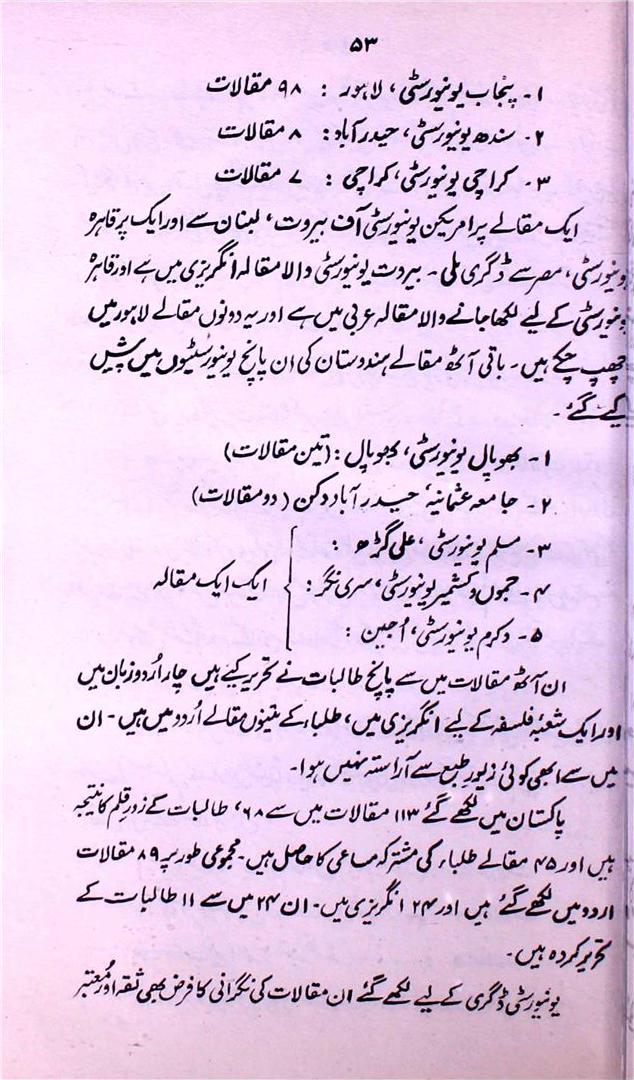 ۵۳
۱- پنجاب یونیورسٹی، لاہور : ۹۸ مقالات
۲- سندھ یونیورسٹی، حیدرآباد: ۸ مقالات
۳- کراچی یونیورسٹی، کراچی : ۷ مقالات
ایک مقالے پر امریکن یونیورسٹی آف بیروت، لبنان سے اور ایک پر قاہرہ
یونیورسٹی، مصر سے ڈگری ملی۔ بیروت یونیورسٹی والا مقالہ انگریزی میں ہے اور قاہرہ
یونیورسٹی کے لیے لکھا جانے والا مقالہ عربی میں ہے اور یہ دونوں مقالے لاہور میں
چھپ چکے ہیں۔ باقی آٹھ مقالے ہندوستان کی ان پانچ یونیورسٹیوں میں پیش
کیے گئے۔
۱- بھوپال یونیورسٹی، بھوپال : (تین مقالات)
۲- جامعہ عثمانیہ، حیدرآباد دکن (دو مقالات)
۳- مسلم یونیورسٹی، علی گڑھ :
۴- جموں و کشمیر یونیورسٹی، سری نگر : ایک ایک مقالہ
۵- وکرم یونیورسٹی، اُجین :
ان آٹھ مقالات میں سے پانچ طالبات نے تحریر کیے ہیں چار اُردو زبان میں
اور ایک شعبۂ فلسفہ کے لیے انگریزی میں، طلباء کے تینوں مقالے اُردو میں ہیں۔ ان
میں سے ابھی کوئی زیور طبع سے آراستہ نہیں ہوا۔
پاکستان میں لکھے گئے ۱۱۳ مقالات میں سے ۶۸، طالبات کے زورِ قلم کا نتیجہ
ہیں اور ۴۵ مقالے طلباء کی مشترکہ مساعی کا حاصل ہیں۔ مجموعی طور پر ۸۹ مقالات
اردو میں لکھے گئے ہیں اور ۲۴ انگریزی میں۔ ان ۲۴ میں سے ۱۱ طالبات کے
تحریر کردہ ہیں۔
یونیورسٹی ڈگری کے لیے لکھے گئے ان مقالات کی نگرانی کا فرض بھی ثقہ اور مُعتبر